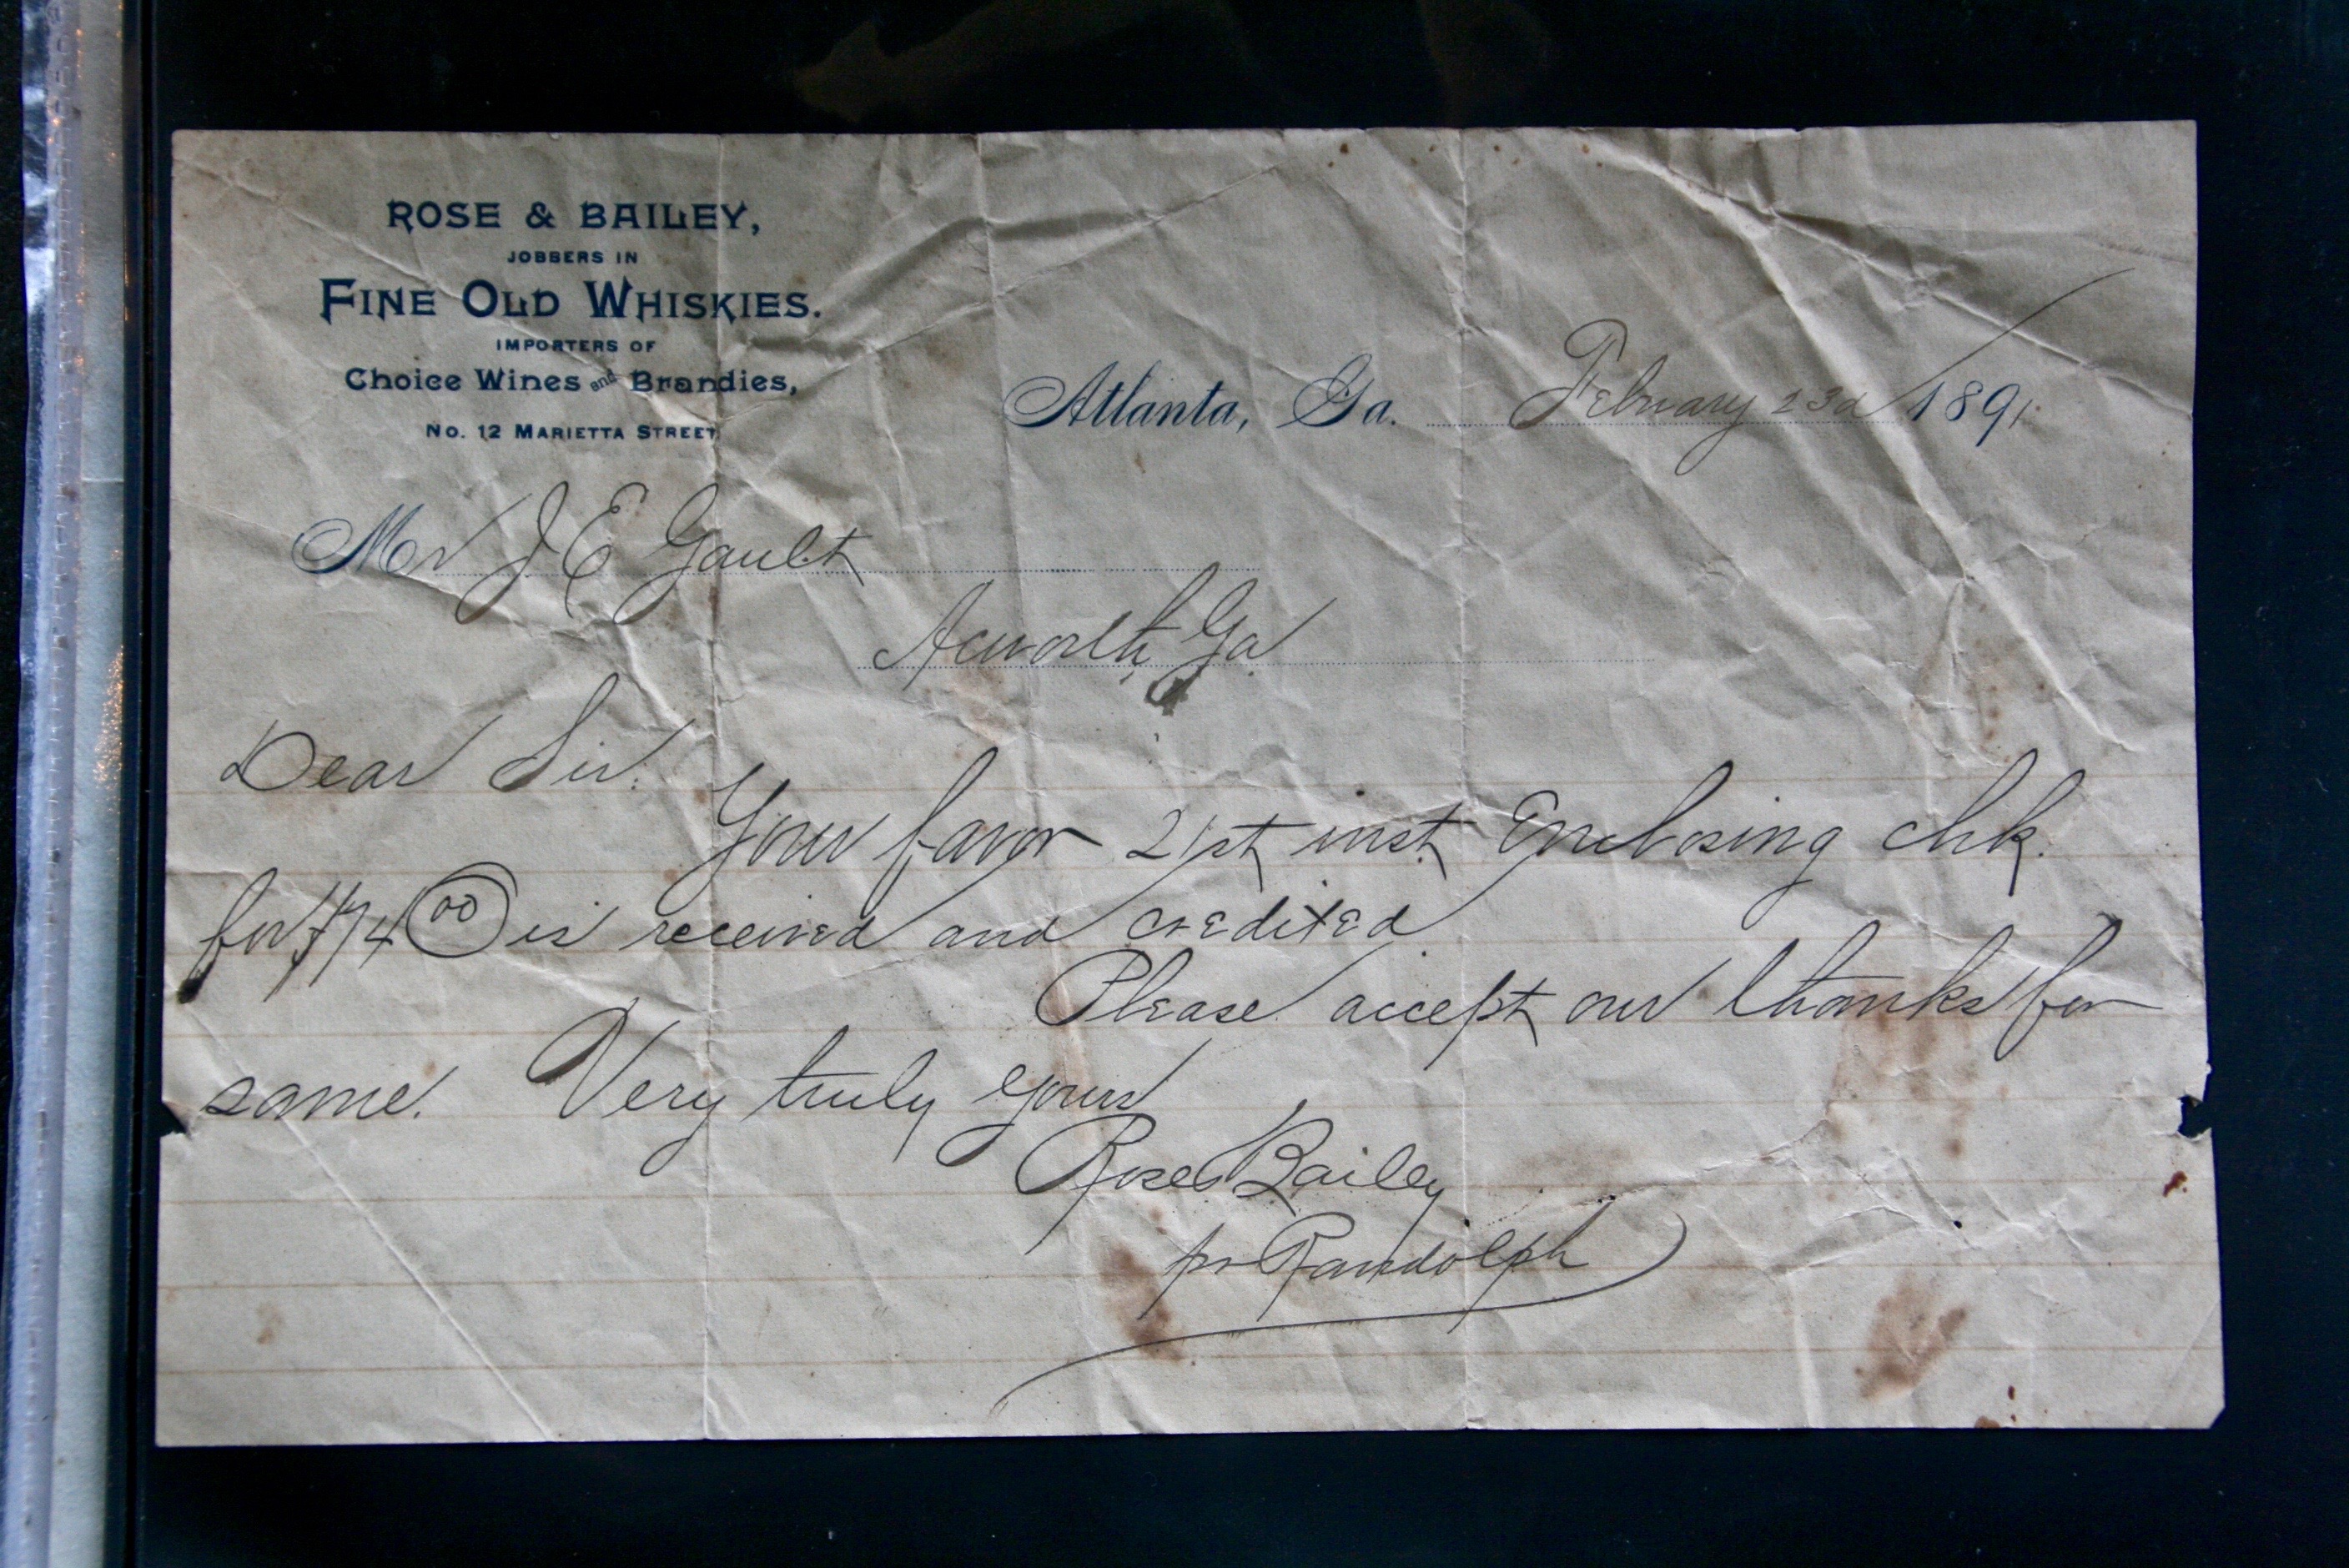 ROSE & BAILEY,
JOBBERS IN
FINE OLD WHISKIES.
IMPORTERS OF
Choice Wines and Brandies,
No. 12 MARIETTA STREET
Atlanta, Ga. February 23d 1891
Mr J E Gault
Acworth, Ga
Dear Sir:
Your favor 21st inst Enclosing chk.
for $74 00 is received and credited
Please accept our thanks for
same. Very truly yours
Rose & Bailey
pr Randolph